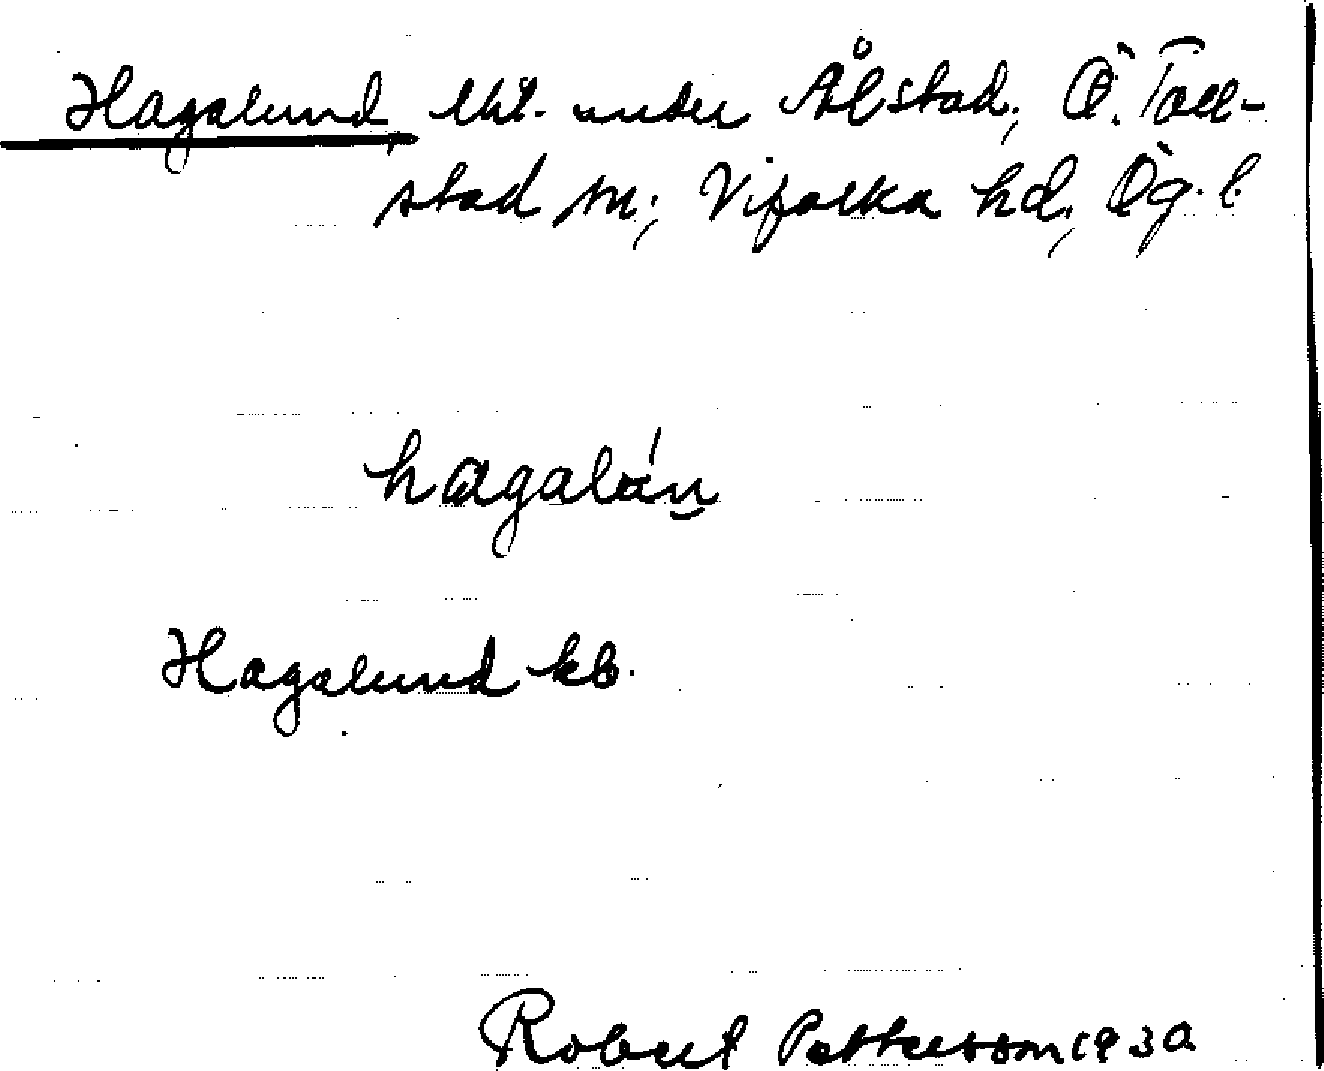 Hagalund lht. under Ålstad, Ö. Toll-
stad sn, Vifolka hd, Ög. l.
hagalún
Hagalund kb.
Robert Pettersson 1930